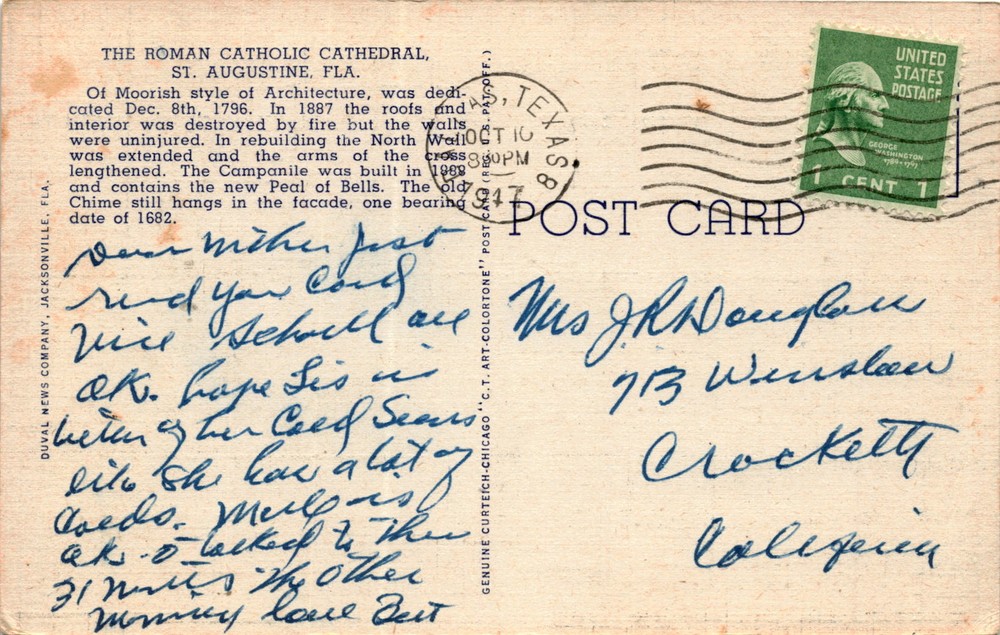 THE ROMAN CATHOLIC CATHEDRAL,
ST. AUGUSTINE, FLA.
Of Moorish style of Architecture, was dedi-
cated Dec. 8th, 1796. In 1887 the roofs and
interior was destroyed by fire but the walls
were uninjured. In rebuilding the North Wall
was extended and the arms of the cross
lengthened. The Campanile was built in 1888
and contains the new Peal of Bells. The old
Chime still hangs in the facade, one bearing
date of 1682.
Dear Mother Just
read your Card
are
OK. hope Sis is
better of her Cold Seems
like she has a lot of
Colds. is
OK. I talked to
31 the other
Morning love
DUVAL NEWS COMPANY, JACKSONVILLE, FLA.
GENUINE CURTEICH-CHICAGO "C.T. ART-COLORTONE" POST CARD (REG. U.S. PAT. OFF.)
TEXAS
OCT 10
PM
1947
8
UNITED
STATES
POSTAGE
GEORGE
WASHINGTON
1 CENT 1
POST CARD
Mrs J R Douglas
713 Winslow
Crockett
California